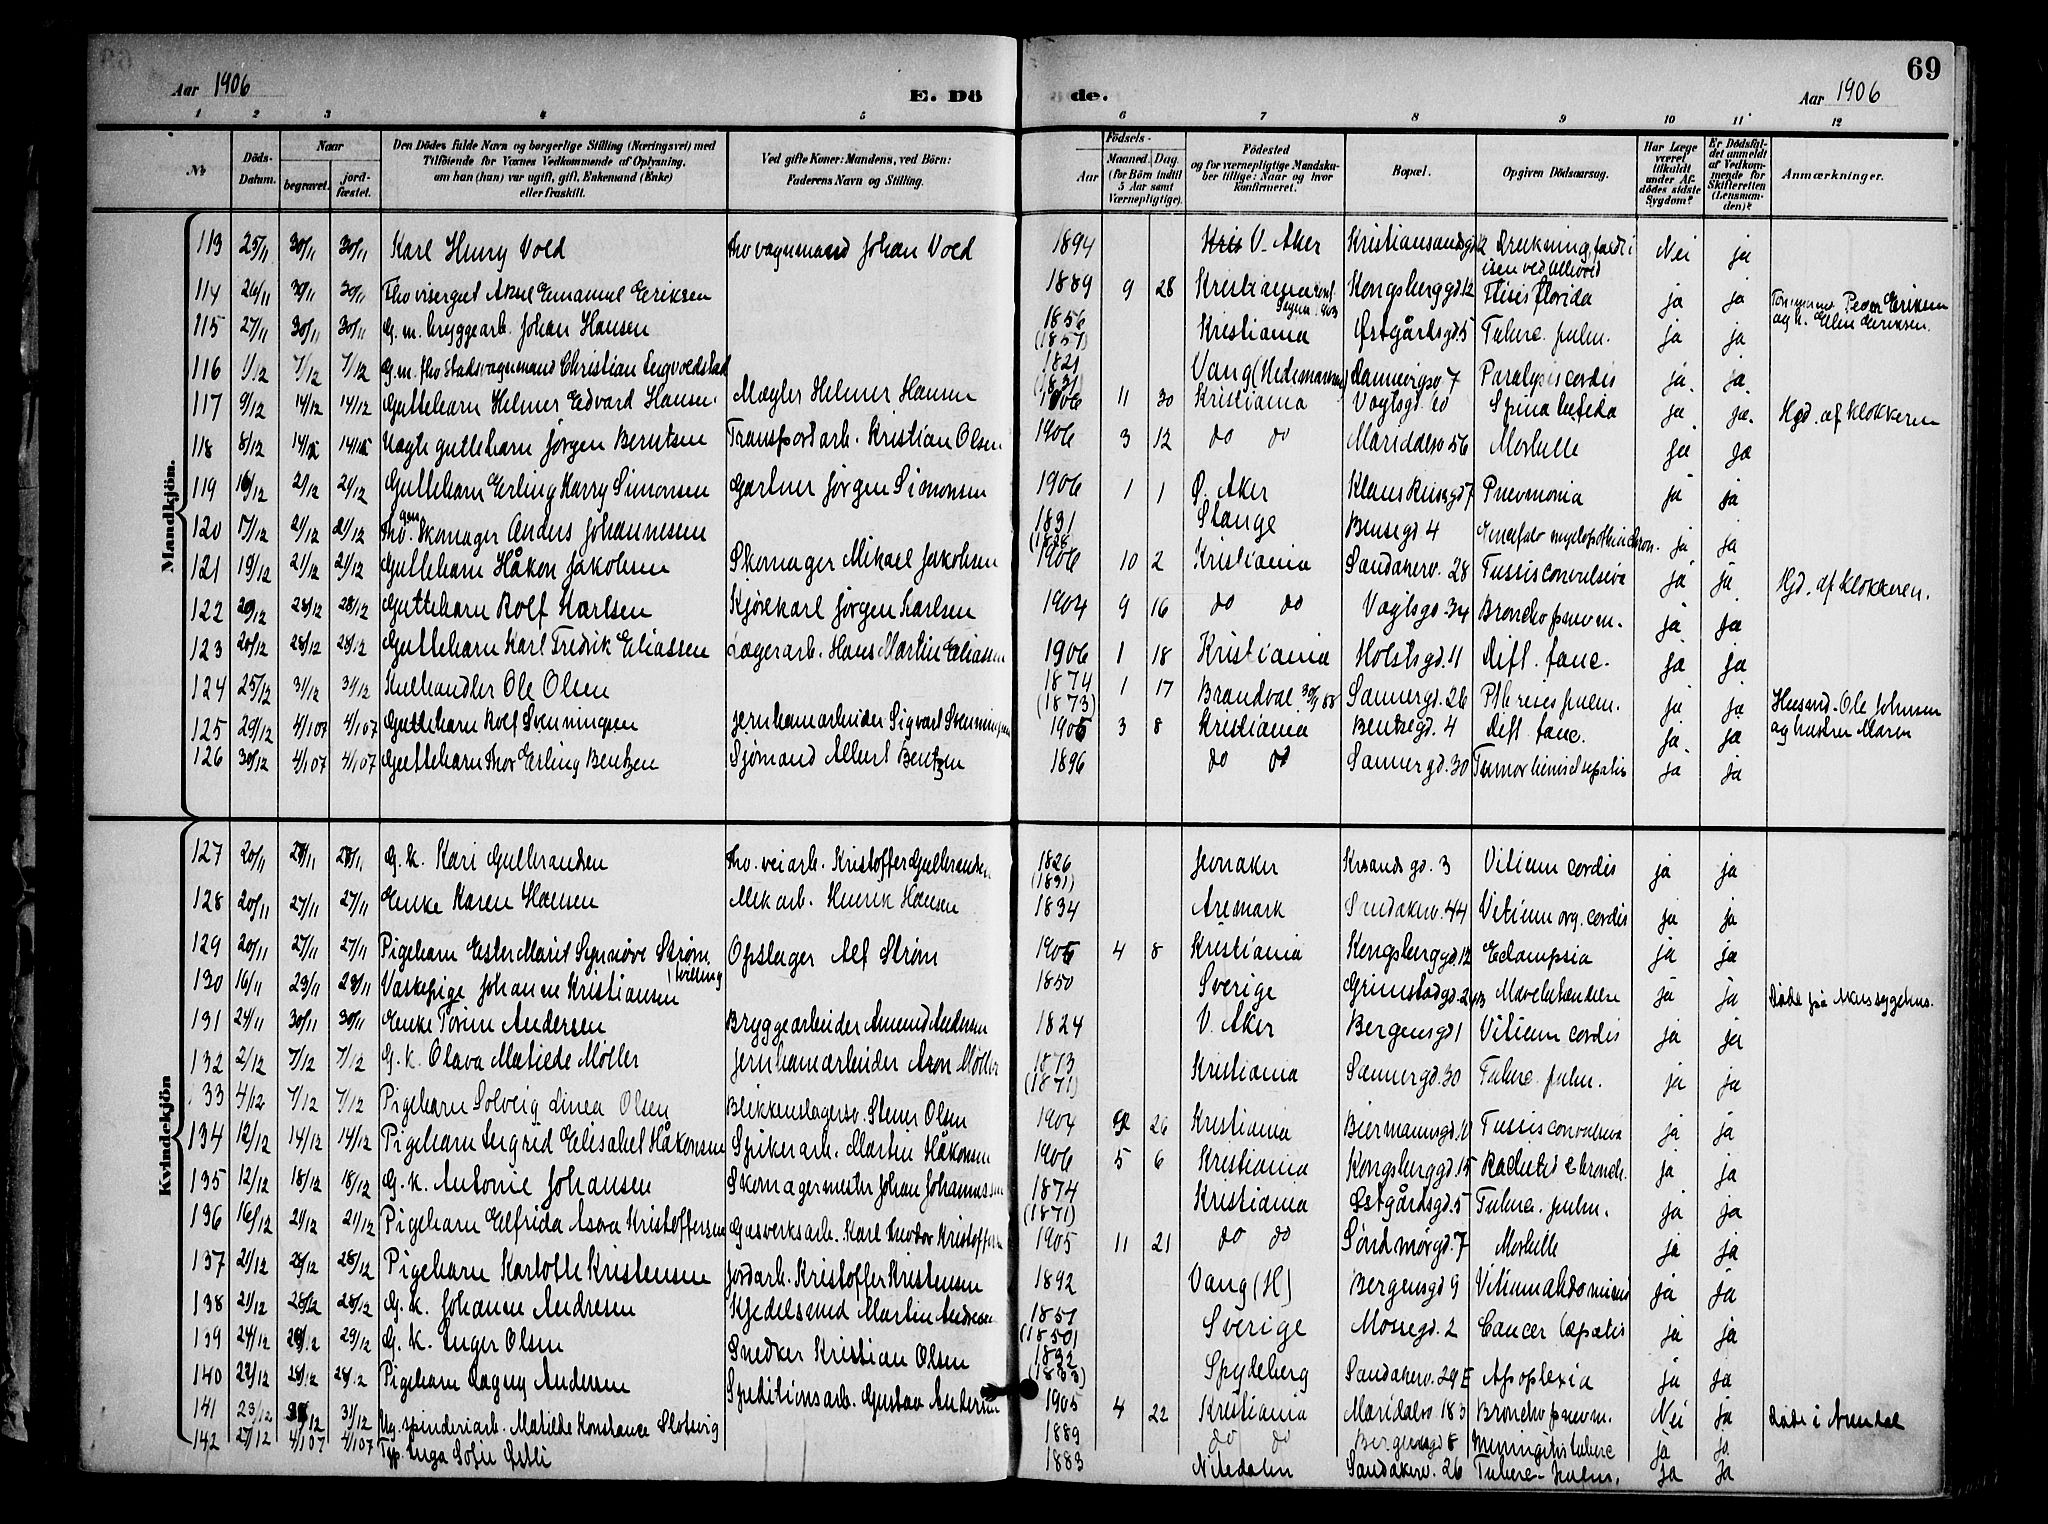 69
Aar 1906
E. Dö de.
Aar 1906
1 2 3 4 5 6 7 8 9 10 11 12
No
Döds-Datum.
Naar
begravet.
jordfæstet.
Den Dödes fulde Navn og borgerlige Stilling (Næringsvei) med Tilföiende for Voxnes Vedkommende af Oplysning, om han (hun) var ugift, gift, Enkemand (Enke) eller fraskilt.
Ved gifte Koner: Mandens, ved Börn: Faderens Navn og Stilling.
Födsels-
Aar
Maaned. Dag.
(for Börn indtil 5 Aar samt Værnepligtige).
Födested og for værnepligtige Mandskaber tillige: Naar og hvor Konfirmeret.
Bopæl.
Opgiven Dödsaarsag.
Har Læge været tilkaldt under Afdödes sidste Sygdom?
Er Dödsfaldet anmeldt af Vedkommende for Skifteretten (Lensmanden)?
Anmærkninger.
Mandkjön.
113 25/11 30/11 30/11 Karl Henry Vold fhv vognmand Johan Vold 1894 V. Aker Kristiansandsgd 2 Drukning, faldt i isen ved Nei ja
114 26/11 30/11 30/11 fhv visergut Aksel Emanuel Eriksen 1889 9 28 Kristiania Kongsberggd. 12 Ftisis florida ja ja Peder Eriksen og k. Ellen Eriksen.
115 27/11 30/11 30/11 G. m. bryggearb. Johan Hansen 1856 (1857) Kristiania Østgårdsgd. 5 Tuberc. pulm. ja ja
116 1/12 7/12 7/12 G. m. fhv Stadsvognmand Christian Engvoldstad 1821 (1831) Vang (Hedemarken) 7 Paralysis cordis ja. ja.
117 9/12 14/12 14/12 Guttebarn Helmer Edvard Hansen. Mægler Helmer Hansen 1906 11 30 Kristiania Vogtsgd. 20 Spina befida ja ja. Hjd. af klokkeren
118 8/12 14/12 14/12 Uægte guttebarn Jørgen Berntsen Transportarb. Kristian Olsen 1906 3 12 do do Maridalsv 56 Morbille ja ja
119 16/12 21/12 21/12 Guttebarn Erling Harry Simonsen Gartner Jørgen Simonsen 1906 1 1 Ø. Aker Klaus Riisgd 7 Pnevmonia ja ja
120 17/12 21/12 21/12 Fhv. Skomager Anders Johannesen 1831 (1828 Stange Bentsegd. 4 ja ja
121 19/12 21/12 21/12 Guttebarn Håkon Jakobsen Skomager Mikael Jakobsen 1906 10 2 Kristiania Sandakerv. 28 Tussis convulsiva ja ja Hjd. af klokkeren.
122 20/12 28/12 28/12 Guttebarn Rolf Karlsen Kjørekarl Jørgen Karlsen 1904 9 16 do do Vogtsgd. 34 Broncho pnevm. ja ja
123 20/12 28/12 28/12 Guttebarn Karl Fredrik Eliassen Lagerarb. Hans Martin Eliassen 1906 1 18 Kristiania Holstsgd. 11 Dift. fauc. ja ja
124 25/12 31/12 31/12 Kulhandler Ole Olsen 1874 (1873) 1 17 Brandval 30/9 88 Sannergd. 26 Pthreses pulm. ja ja Husmd. Ole Johnsen og hustru Maren
125 29/12 4/1 07 4/1 07 Guttebarn Rolf Svenningsen Jernbanearbeider Sigvart Svenningsen 1905 3 8 Kristiania Bentsegd. 4 Dift. fauc. ja. ja
126 30/12 4/1 07 4/1 07 Guttebarn Thor Erling Bentzen Sjømand Albert Bentzen 1896 do do Sannergd. 30 Tumor ja ja
Kvindekjön
127 20/11 27/11 27/11 G. k. Kari Gulbrandsen fhv. veiarb. Kristoffer Gulbrandsen 1826 (1831) Jevnaker Krsandsgd. 3 Vitium cordis ja ja
128 20/11 27/11 27/11 Enke Karen Hansen Mek arb. Henrik Hansen 1834 Aremark Sandakerv. 44 Vitium org. cordis ja ja
129 20/11 27/11 27/11 Pigebarn Ester Marit Synnøve Strøm, tvilling Opslager Alf Strøm 1906 4 8 Kristiania Kongsberggd. 12 Eclampsia ja ja
130 16/11 23/11 23/11 Vaskepige Johanne Kristiansen 1850 Sverige Grimstadgd. 24 Mavebetændelse ja ja Døde på Akers sygehus.
131 24/11 30/11 30/11 Enke Torine Andersen Bryggearbeider Amund Andersen 1824 V. Aker Bergensgd 1 Vitium cordis ja ja
132 2/12 7/12 7/12 G. k. Olava Matilde Møller Jernbanearbeider Aron Møller 1873 (1871) Kristiania Sannergd. 30 Tuberc. pulm. ja ja
33 4/12 7/12 7/12 Pigebarn Solveig Linea Olsen Blikkenslagersv. Stener Olsen 1904 26 Kristiania Biermannsgd. 10 Tussis convulsiva ja ja
134 12/12 14/12 14/12 Pigebarn Ingrid Elisabet Håkonsen Spikerarb. Martin Håkonsen 1906 5 6 Kristiania Kongsberggd. 15 Rachitis & bronch. ja ja
135 12/12 18/12 18/12 G. k. Antonie Johansen Skomagermester Johan Johannessen 1874 (1871) Kristiania Østgårdsgd. 5 Tuberc. pulm. ja ja
136 16/12 21/12 21/12 Pigebarn Elfrida Asora Kristoffersen Gasverksarb. Karl Theodor Kristoffersen 1905 11 21 do do Søndmørgd. 7 Morbille ja ja
137 21/12 28/12 28/12 Pigebarn Karlotte Kristensen Jordarb. Kristoffer Kristensen 1892 Vang (H) Bergensgd 9 Vitium abdominis ja ja
138 21/12 28/12 28/12 G. k. Johanne Andresen Kjedelsmed Martin Andresen 1851 (1850) Sverige Mossegd. 2 Cancer hepatis ja ja
139 24/12 29/12 29/12 G. k. Inger Olsen Snedker Kristian Olsen 1832 (1833) Spydeberg Sandakerv. 29 E Apoplexia ja ja
140 22/12 28/12 28/12 Pigebarn Dagny Andersen Speditionsarb. Gustav Andersen 1905 4 22 Kristiania Maridalsv 183 Broncho pnevm. Nei ja
141 23/12 31/12 31/12 Ug. spinderiarb. Matilde Konstance Slotsvig 1889 do do Bergensgd 8 Meningitis tuberc ja ja Døde i Arendal
142 27/12 4/1 07 4/1 07 Tjp. Inga Sofie Østli 1883 Nitedalen Sandakerv. 26 Tuberc. pulm. ja ja